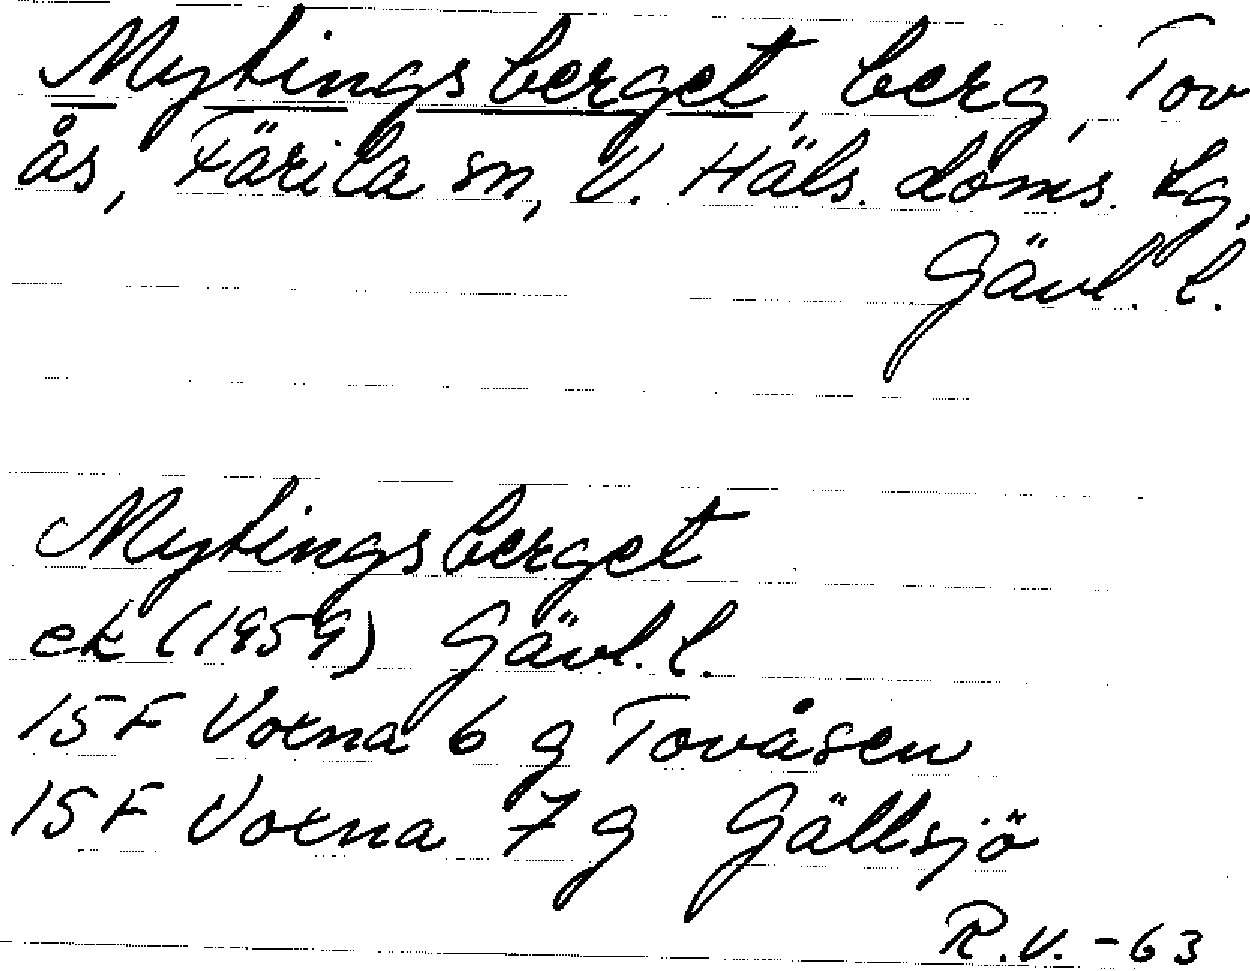 Mytingsberget, berg, Tov
ås, Färila sn, V. Häls. doms. tg,
Gävl. l.
Mytingsberget
ek (1959) Gävl. l.
15F Voxna 6 g Tovåsen
15F Voxna 7 g Gällsjö
R.V. -63